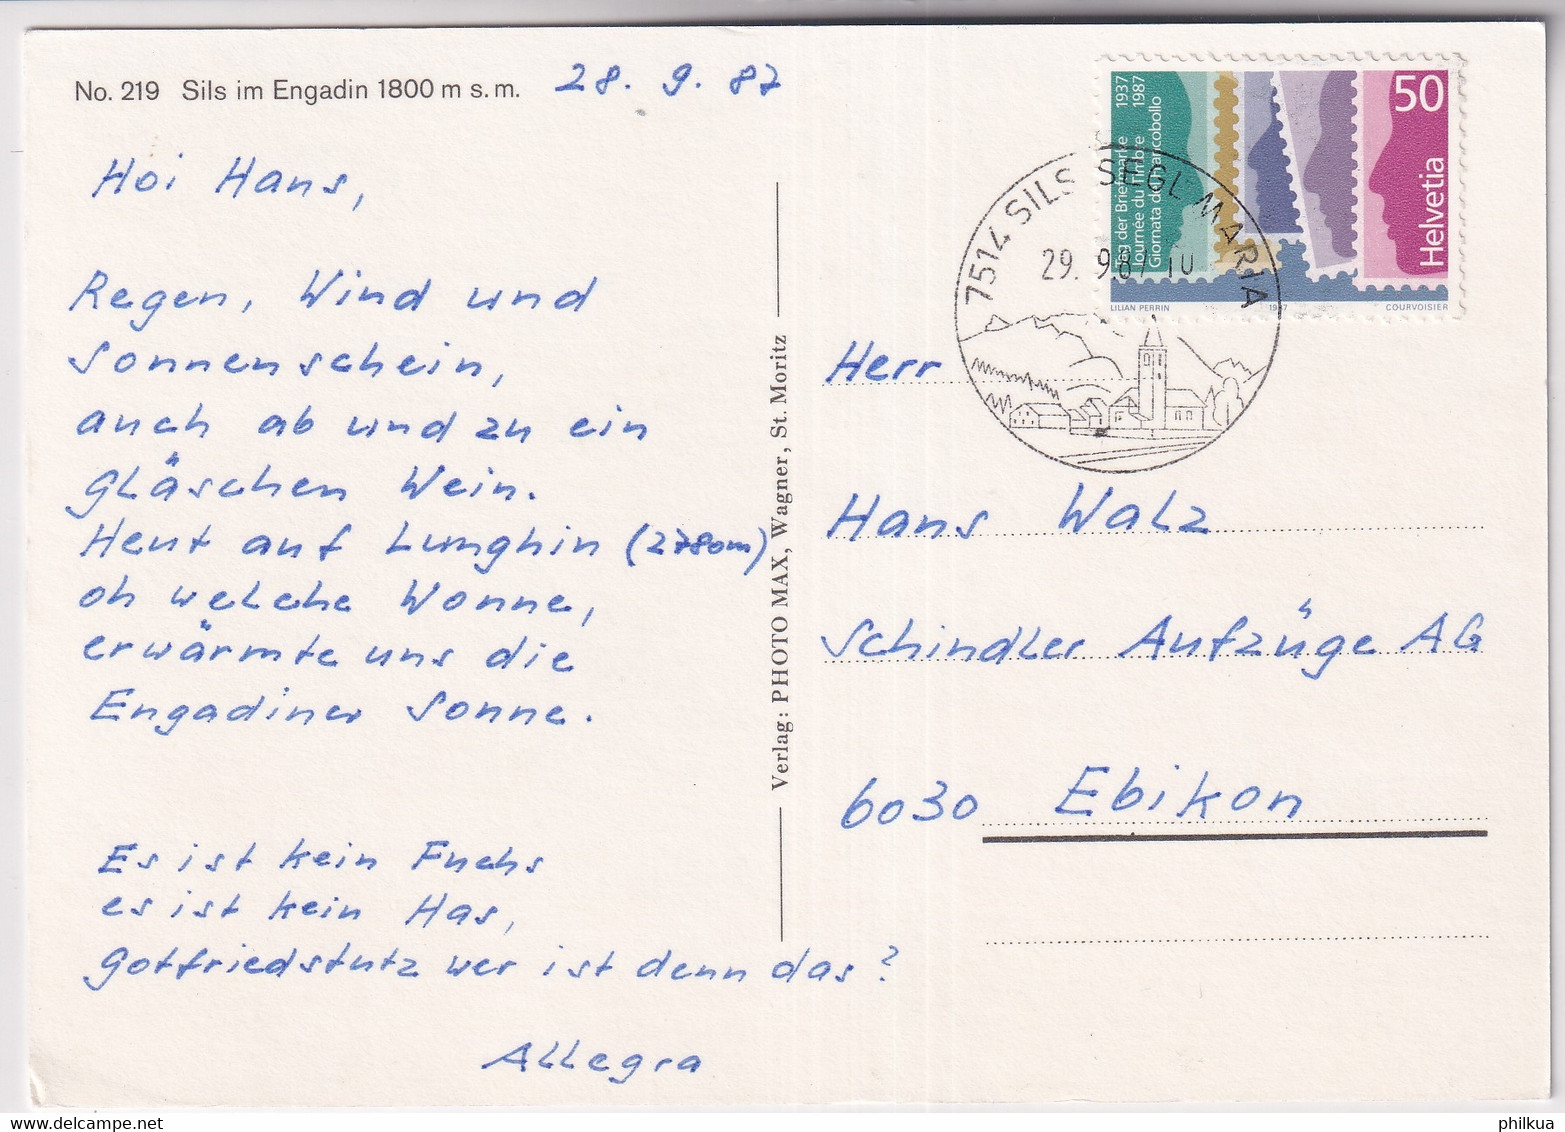 No. 219 Sils im Engadin 1800 m s. m. 28. 9. 87
Hoi Hans,
Regen, Wind und
Sonnenschein,
auch ab und zu ein
gläschen Wein.
Heut auf Lunghin (2780m)
oh welche Wonne,
erwärmte uns die
Engadiner Sonne.
Es ist kein Fuchs
es ist kein Has,
gotfriedstutz wer ist denn das?
Allegra
Verlag: PHOTO MAX, Wagner, St. Moritz
1937
1987
Tag der Briefmarke
Journée du Timbre
Giornata del francobollo
50
Helvetia
LILIAN PERRIN 1987 COURVOISIER
7514 SILS SEGL MARIA
29. 9.87 10
Herr
Hans Walz
Schindler Aufzüge AG
6030 Ebikon
philkua.com